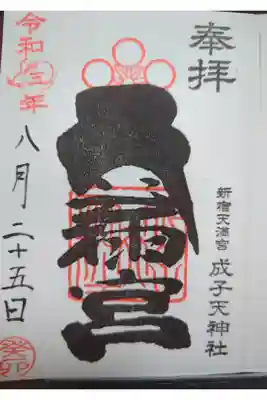 奉拝
新宿天満宮 成子天神社
天満宮
令和 年
八月二十五日
癸卯